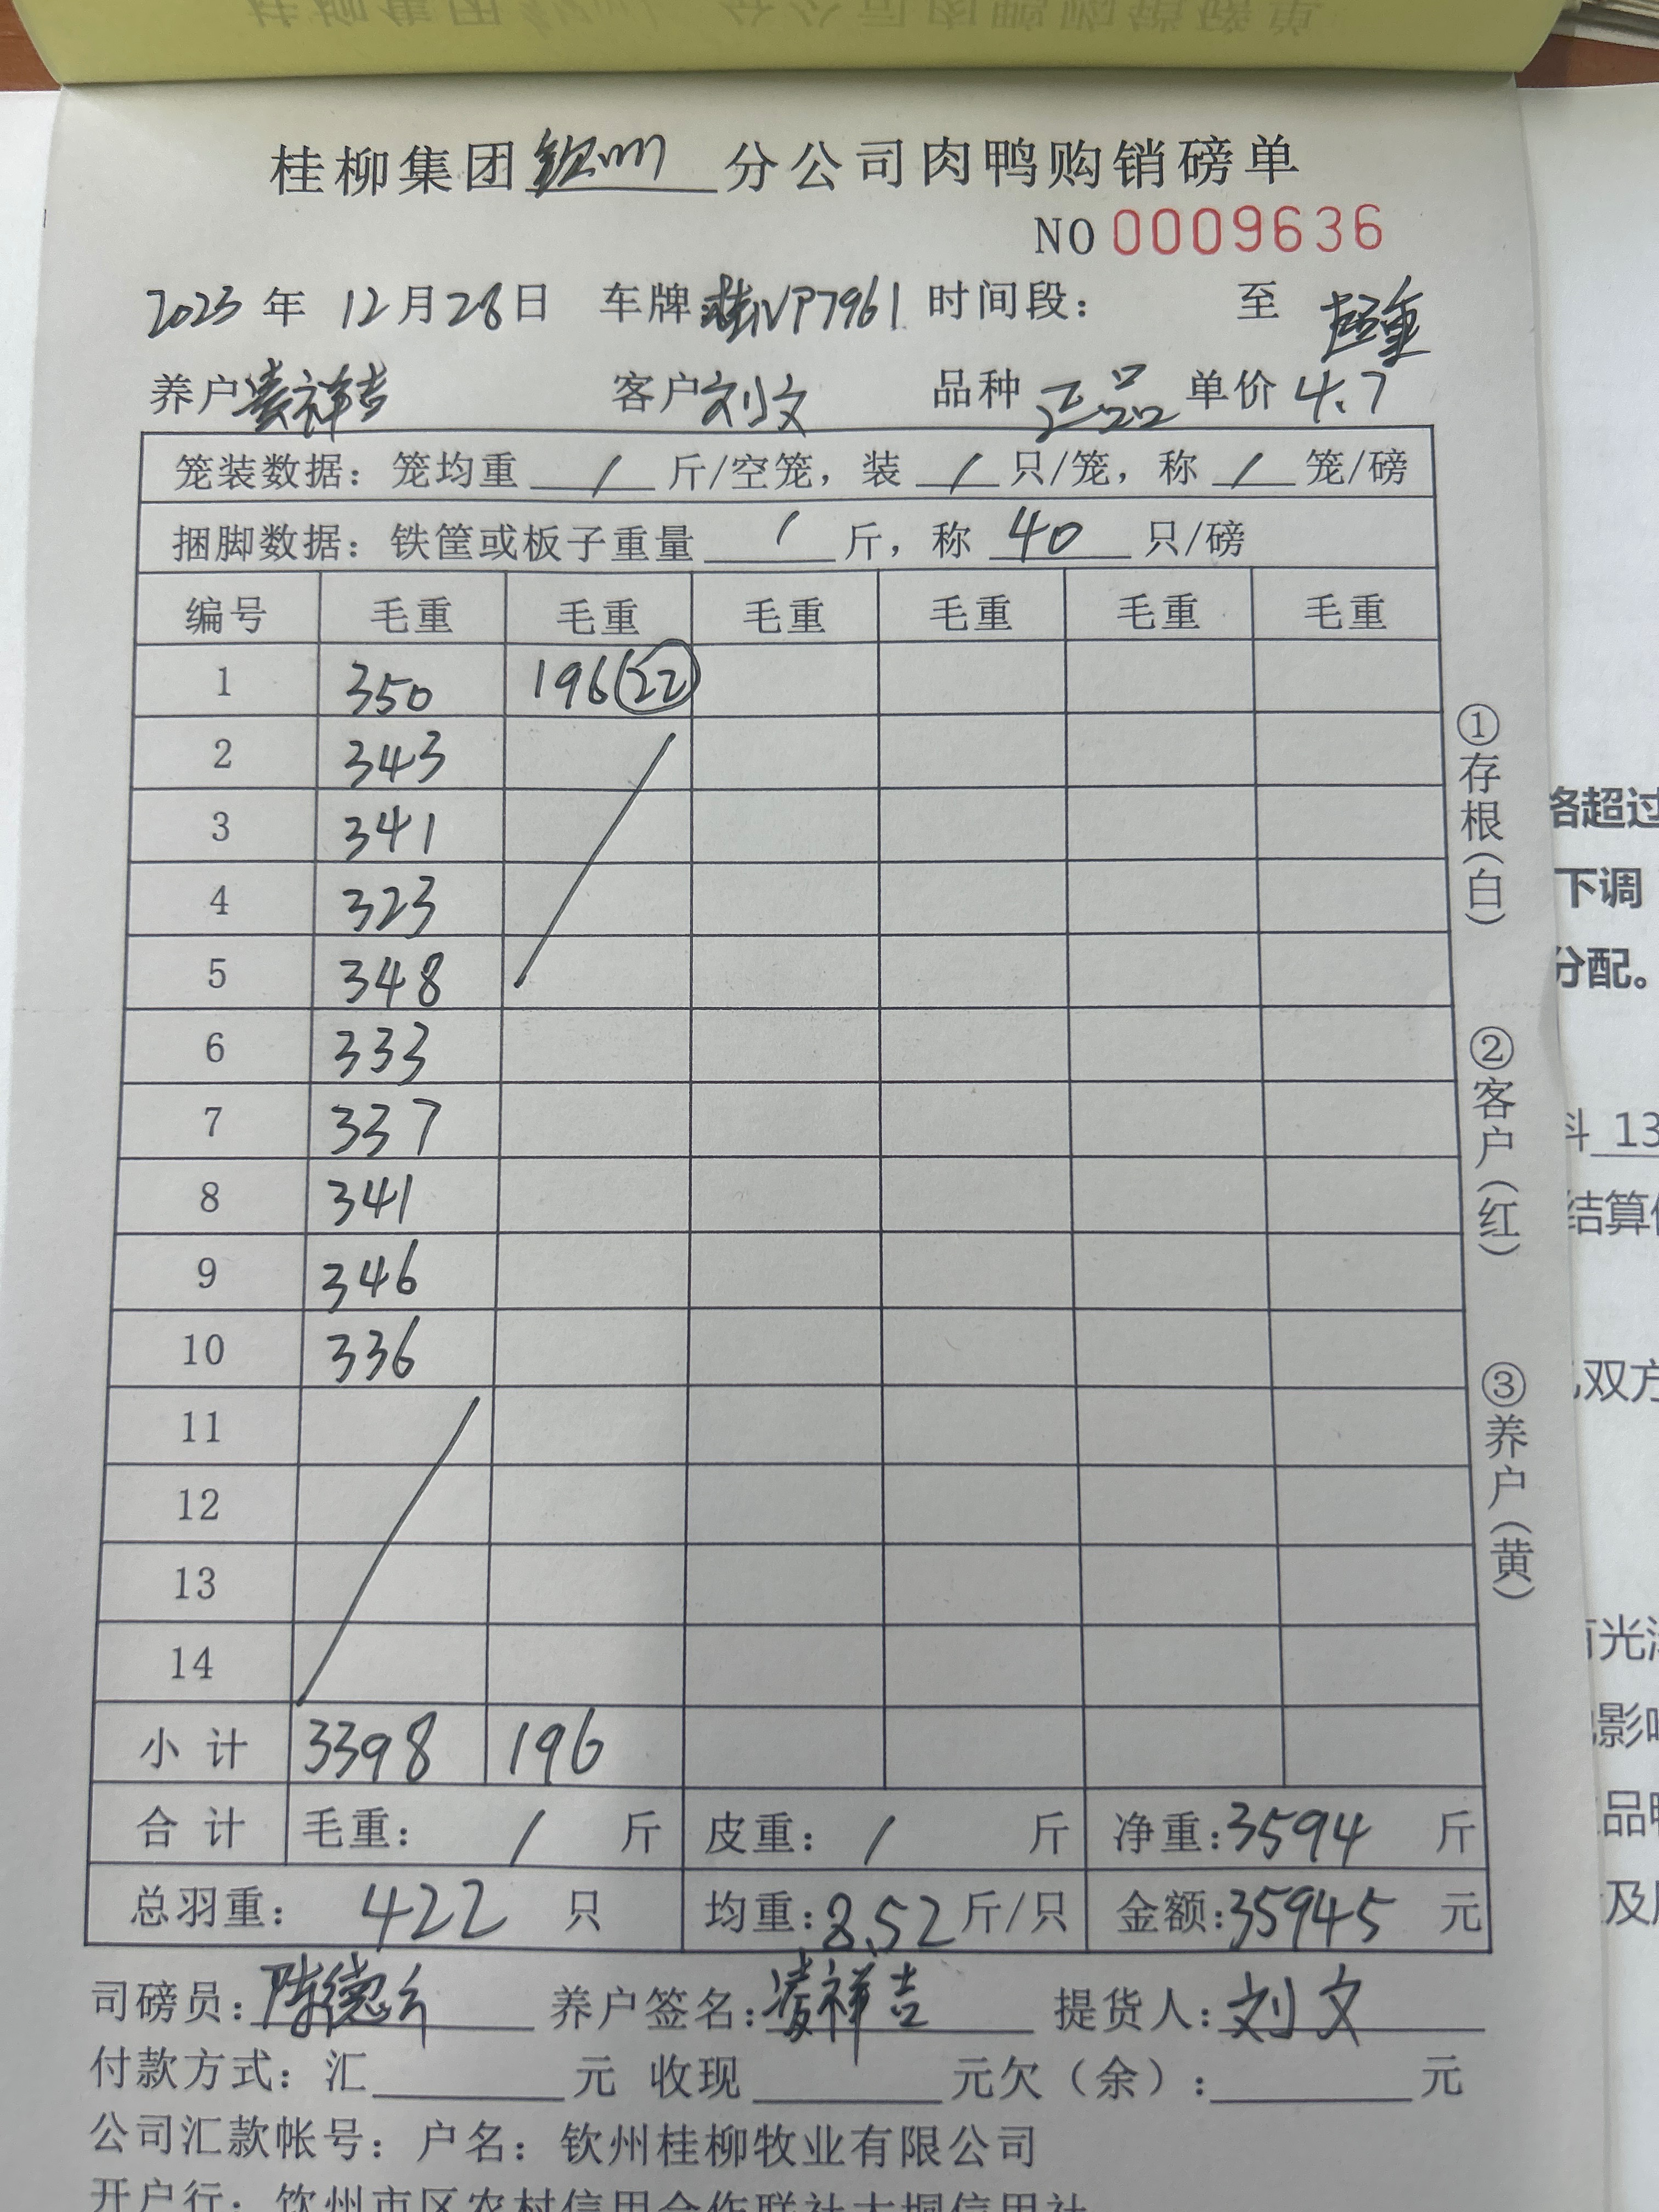 桂柳集团钦州分公司肉鸭购销磅单
NO 0009636
2023年12月28日 车牌桂NP7961 时间段： 至 超重
养户凌祥吉 客户刘文 品种正品 单价4.7
笼装数据：笼均重 / 斤/空笼，装 / 只/笼，称 / 笼/磅
捆脚数据：铁筐或板子重量 / 斤，称 40 只/磅
编号 毛重 毛重 毛重 毛重 毛重 毛重
1 350 196(22)
2 343
3 341
4 323
5 348
6 333
7 337
8 341
9 346
10 336
11
12
13
14
小计 3398 196
合计 毛重： / 斤 皮重： / 斤 净重：3594 斤
总羽重： 422 只 均重：8.52斤/只 金额：35945 元
司磅员：陈德 养户签名：凌祥吉 提货人：刘文
付款方式：汇 元 收现 元欠（余）： 元
公司汇款帐号：户名：钦州桂柳牧业有限公司
开户行：钦州市区农村信用合作联社大垌信用社
①存根（白）
②客户（红）
③养户（黄）
格超过
下调
分配。
料 13
结算
双方
有光
影响
品鸭
及